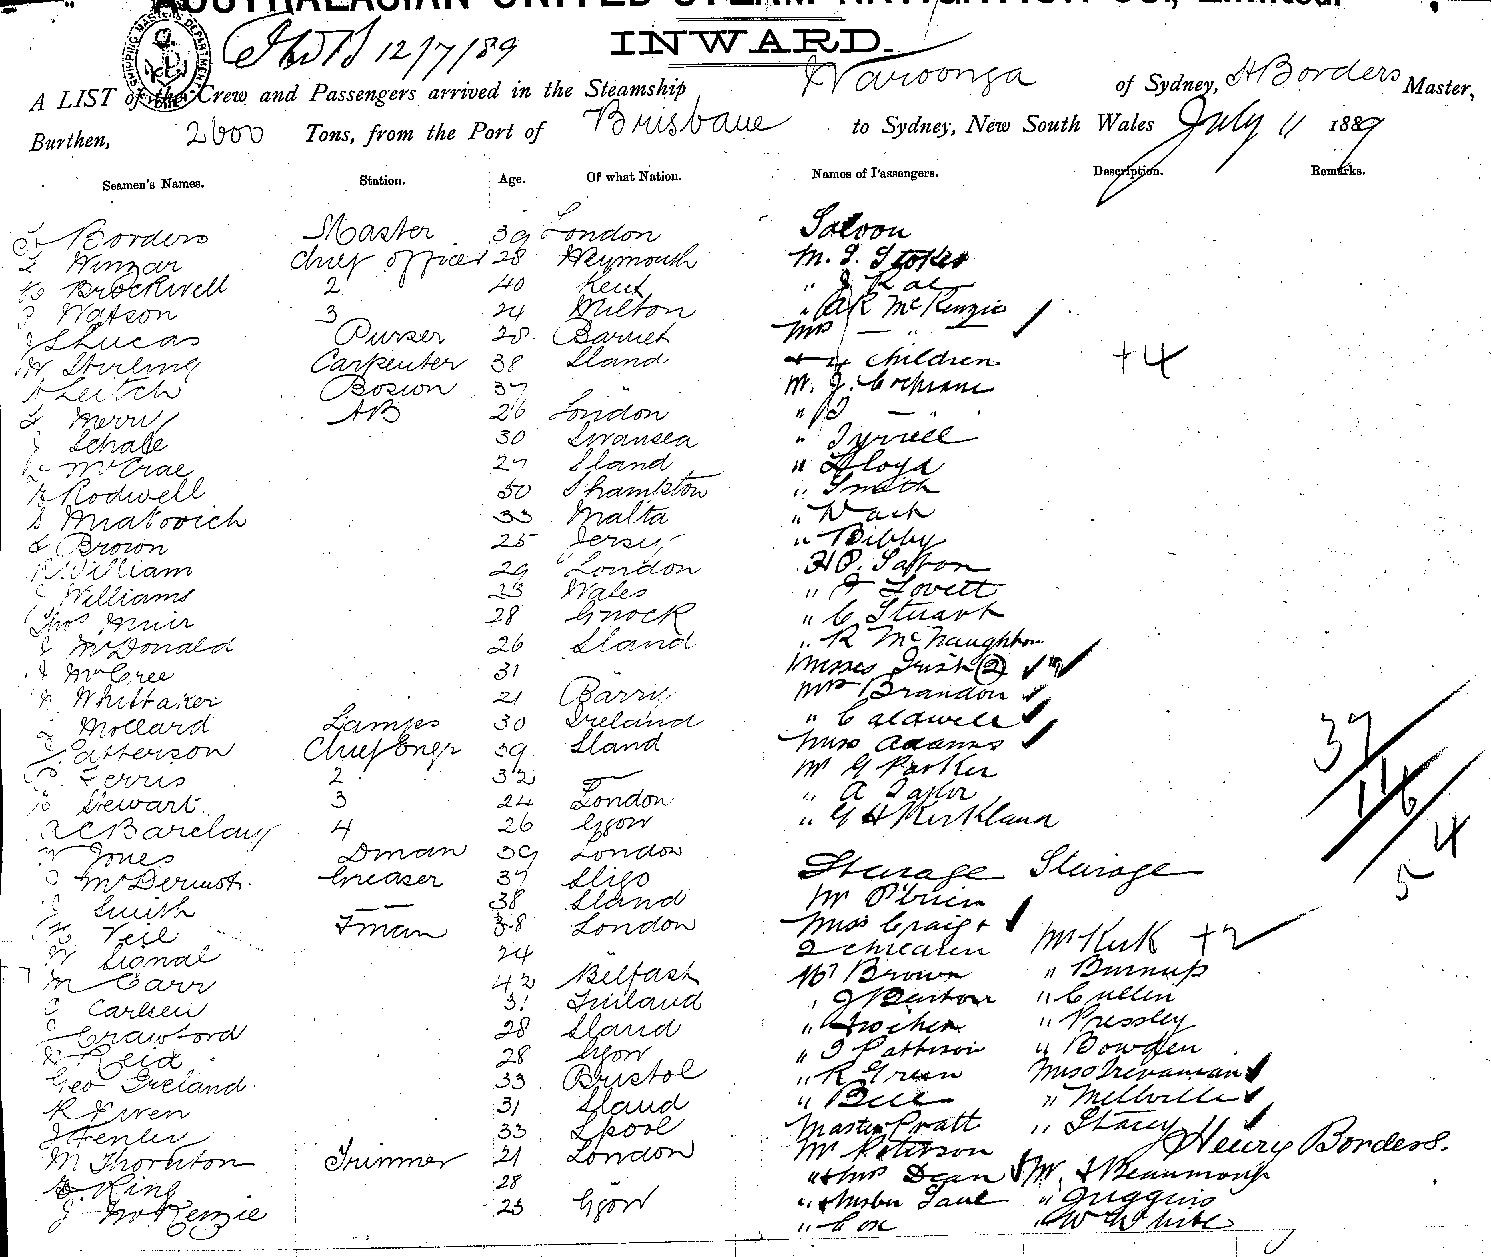 AUSTRALASIAN UNITED STEAM NAVIGATION CO., Limited.
12/7/89
INWARD.
A LIST of the Crew and Passengers arrived in the Steamship Waroonga of Sydney, H Borders Master,
Burthen, 2600 Tons, from the Port of Brisbane to Sydney, New South Wales July 11 1889
Seamen's Names. Station. Age. Of what Nation. Names of Passengers. Description. Remarks.
Borders Master 39 London Saloon
Winzar Chief officer 28 Weymouth M. J. Stokes
Brockwell 2 40 Kent " J Rae
Watson 3 24 Milton " AR McKenzie
Lucas Purser 28 Barnet Mrs — " —
Stirling Carpenter 38 Sland + 4 children +4
Leitch Bosion 37 " M. J. Cochrane
Merry AB 26 London " — " —
Schafe 30 Swansea " Tyrrell
McCrae 27 Sland " Lloyd
Rodwell 50 Shampton " Smith
Miatovich 33 Malta "
Brown 25 Jersey " Bibby
William 29 London
Williams 23 Wales " Lovett
Thos Muir 28 Gnock " C Stuart
McDonald 26 Sland " R McNaughton
McCree 31 " Misses Irish (2)
Whittaker 21 Barry Mrs Brandon
Mollard Lamps 30 Ireland " Caldwell
Patterson Chief Engr 39 Sland Miss Adams
Ferris 2 32 — Mr G Parker
Stewart 3 24 London " A Taylor
Barclay 4 26 Ggow " G H Kirkland
37/116/54
Jones Dman 39 London Sturage Sturage
McDermot Greaser 37 Sligo Mr O'Brien
Smith — — 38 Sland
Veil Fman 38 London Miss Craig + Mr Kirk +2
Signal 24 " 2 children
Carr 42 Belfast Mr Brown " Burnup
Carlsen 31 Finland " J Barton " Cullen
Crawford 28 Sland " " Pressley
Reid 28 Ggow " Pattison " Bowden
Geo Ireland 33 Bristol " R Green Miss
R Ewen 31 Sland " Bell " Mellville
33 Lpool Master Pratt " Stacey
Henry Borders.
M Thornton Trimmer 21 London Mr Peterson
King 28 " " & Mrs Dean Mr J Beaumont
J McKenzie 23 Ggow " & Master Lane " Juggins
" Cox " W White